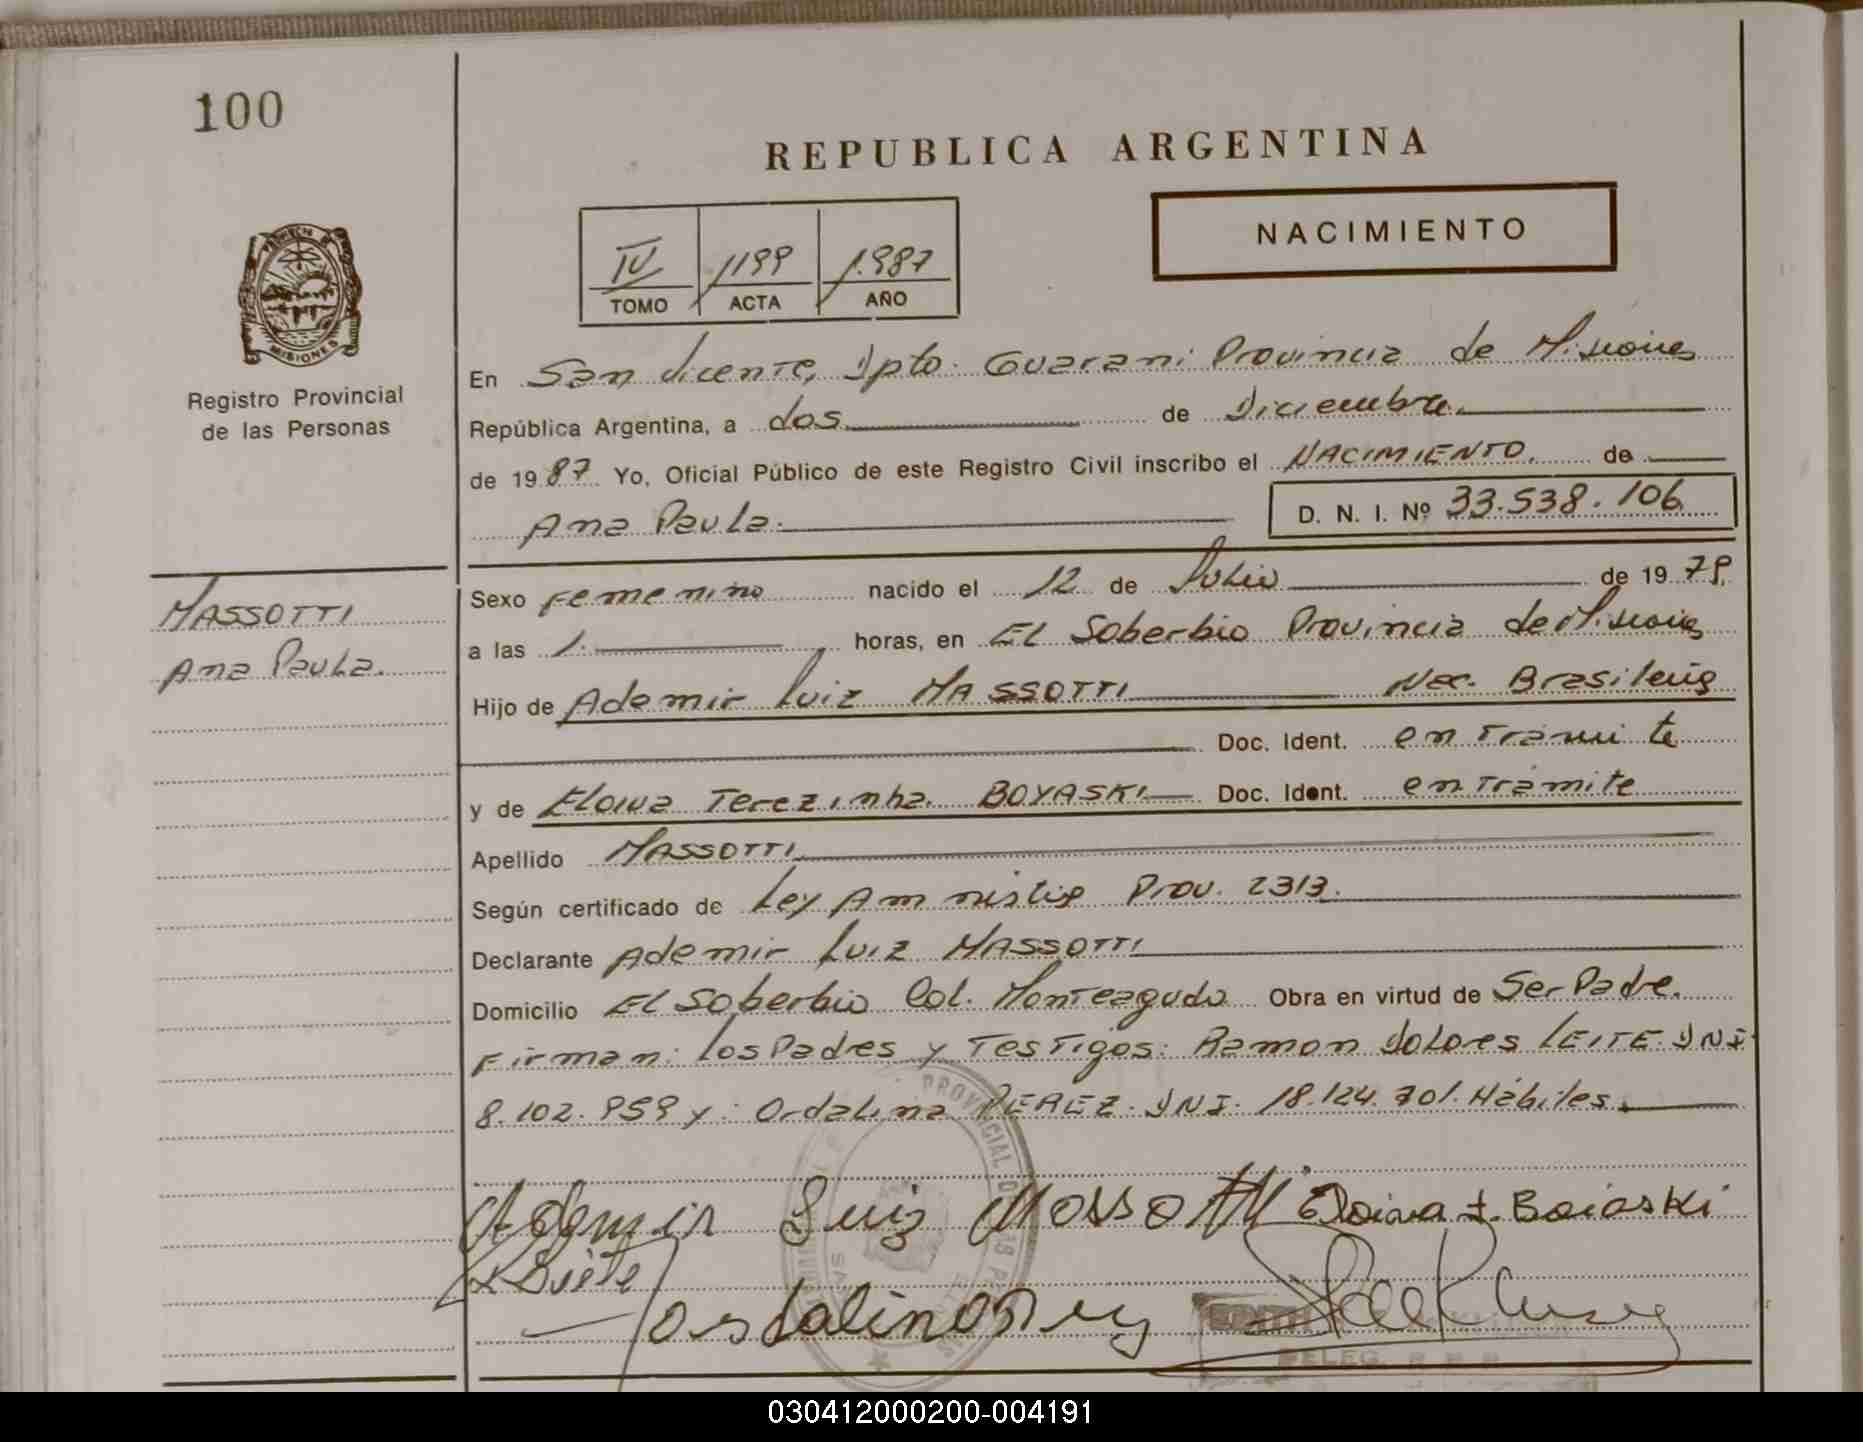 100
REPUBLICA ARGENTINA
NACIMIENTO
IV 1199 1.987
TOMO ACTA AÑO
MISIONES
Registro Provincial
de las Personas
En San Vicente, Dpto. Guarani Provincia de Misiones
República Argentina, a dos de Diciembre
de 1987 Yo, Oficial Público de este Registro Civil inscribo el NACIMIENTO. de
Ana Paula. D. N. I. Nº 33.538.106
MASSOTTI
Ana Paula.
Sexo Femenino nacido el 12 de Julio de 1979.
a las 1. horas, en El Soberbio Provincia de Misiones
Hijo de Ademir Luiz MASSOTTI Nac. Brasileña
Doc. Ident. en Tramite
y de Eloiva Terezinha BOYASKI Doc. Ident. en Tramite
Apellido MASSOTTI
Según certificado de Ley Amnistia Prov. 2313.
Declarante Ademir Luiz MASSOTTI
Domicilio El Soberbio Col. Monteagudo Obra en virtud de Ser Padre.
Firman: Los Padres y Testigos: Ramon Dolores LEITE. DNI
8.102.959 y: Ordalina PEREZ. DNI. 18.124.701. Hábiles.
PROVINCIAL
Ademir Luiz Massotti Eloiva t. Boiaski
DELEG. R. P. P.
030412000200-004191